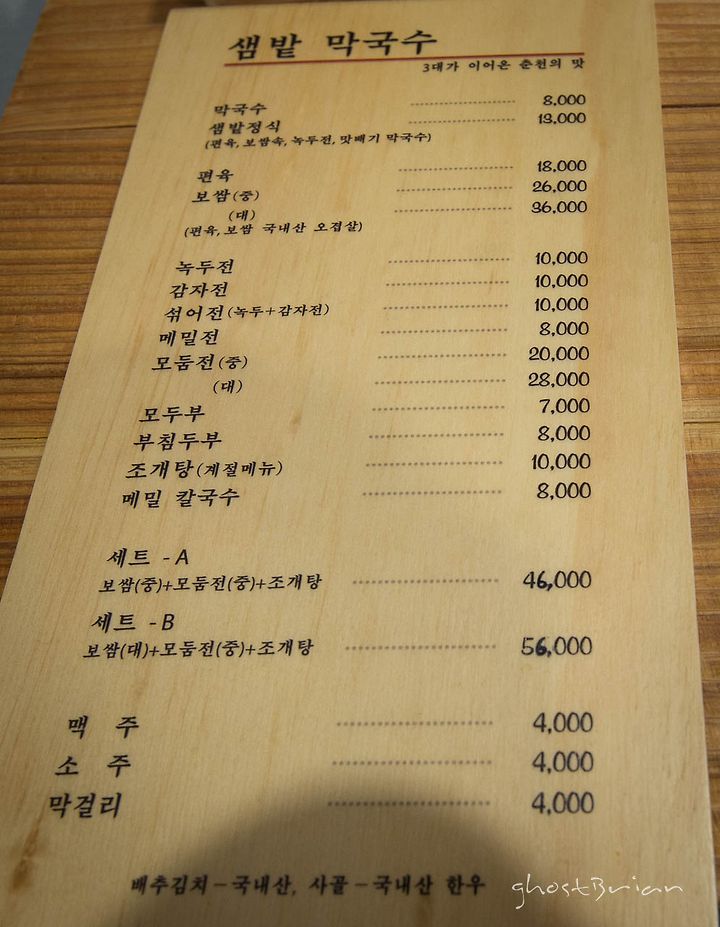 샘밭 막국수
3대가 이어온 춘천의 맛
막국수 8,000
샘밭정식 13,000
(편육, 보쌈속, 녹두전, 맛배기 막국수)
편육 18,000
보쌈(중) 26,000
(대) 36,000
(편육, 보쌈 국내산 오겹살)
녹두전 10,000
감자전 10,000
섞어전(녹두+감자전) 10,000
메밀전 8,000
모둠전(중) 20,000
(대) 28,000
모두부 7,000
부침두부 8,000
조개탕(계절메뉴) 10,000
메밀 칼국수 8,000
세트 -A
보쌈(중)+모둠전(중)+조개탕 46,000
세트 -B
보쌈(대)+모둠전(중)+조개탕 56,000
맥 주 4,000
소 주 4,000
막걸리 4,000
배추김치-국내산, 사골-국내산 한우
ghostBrian